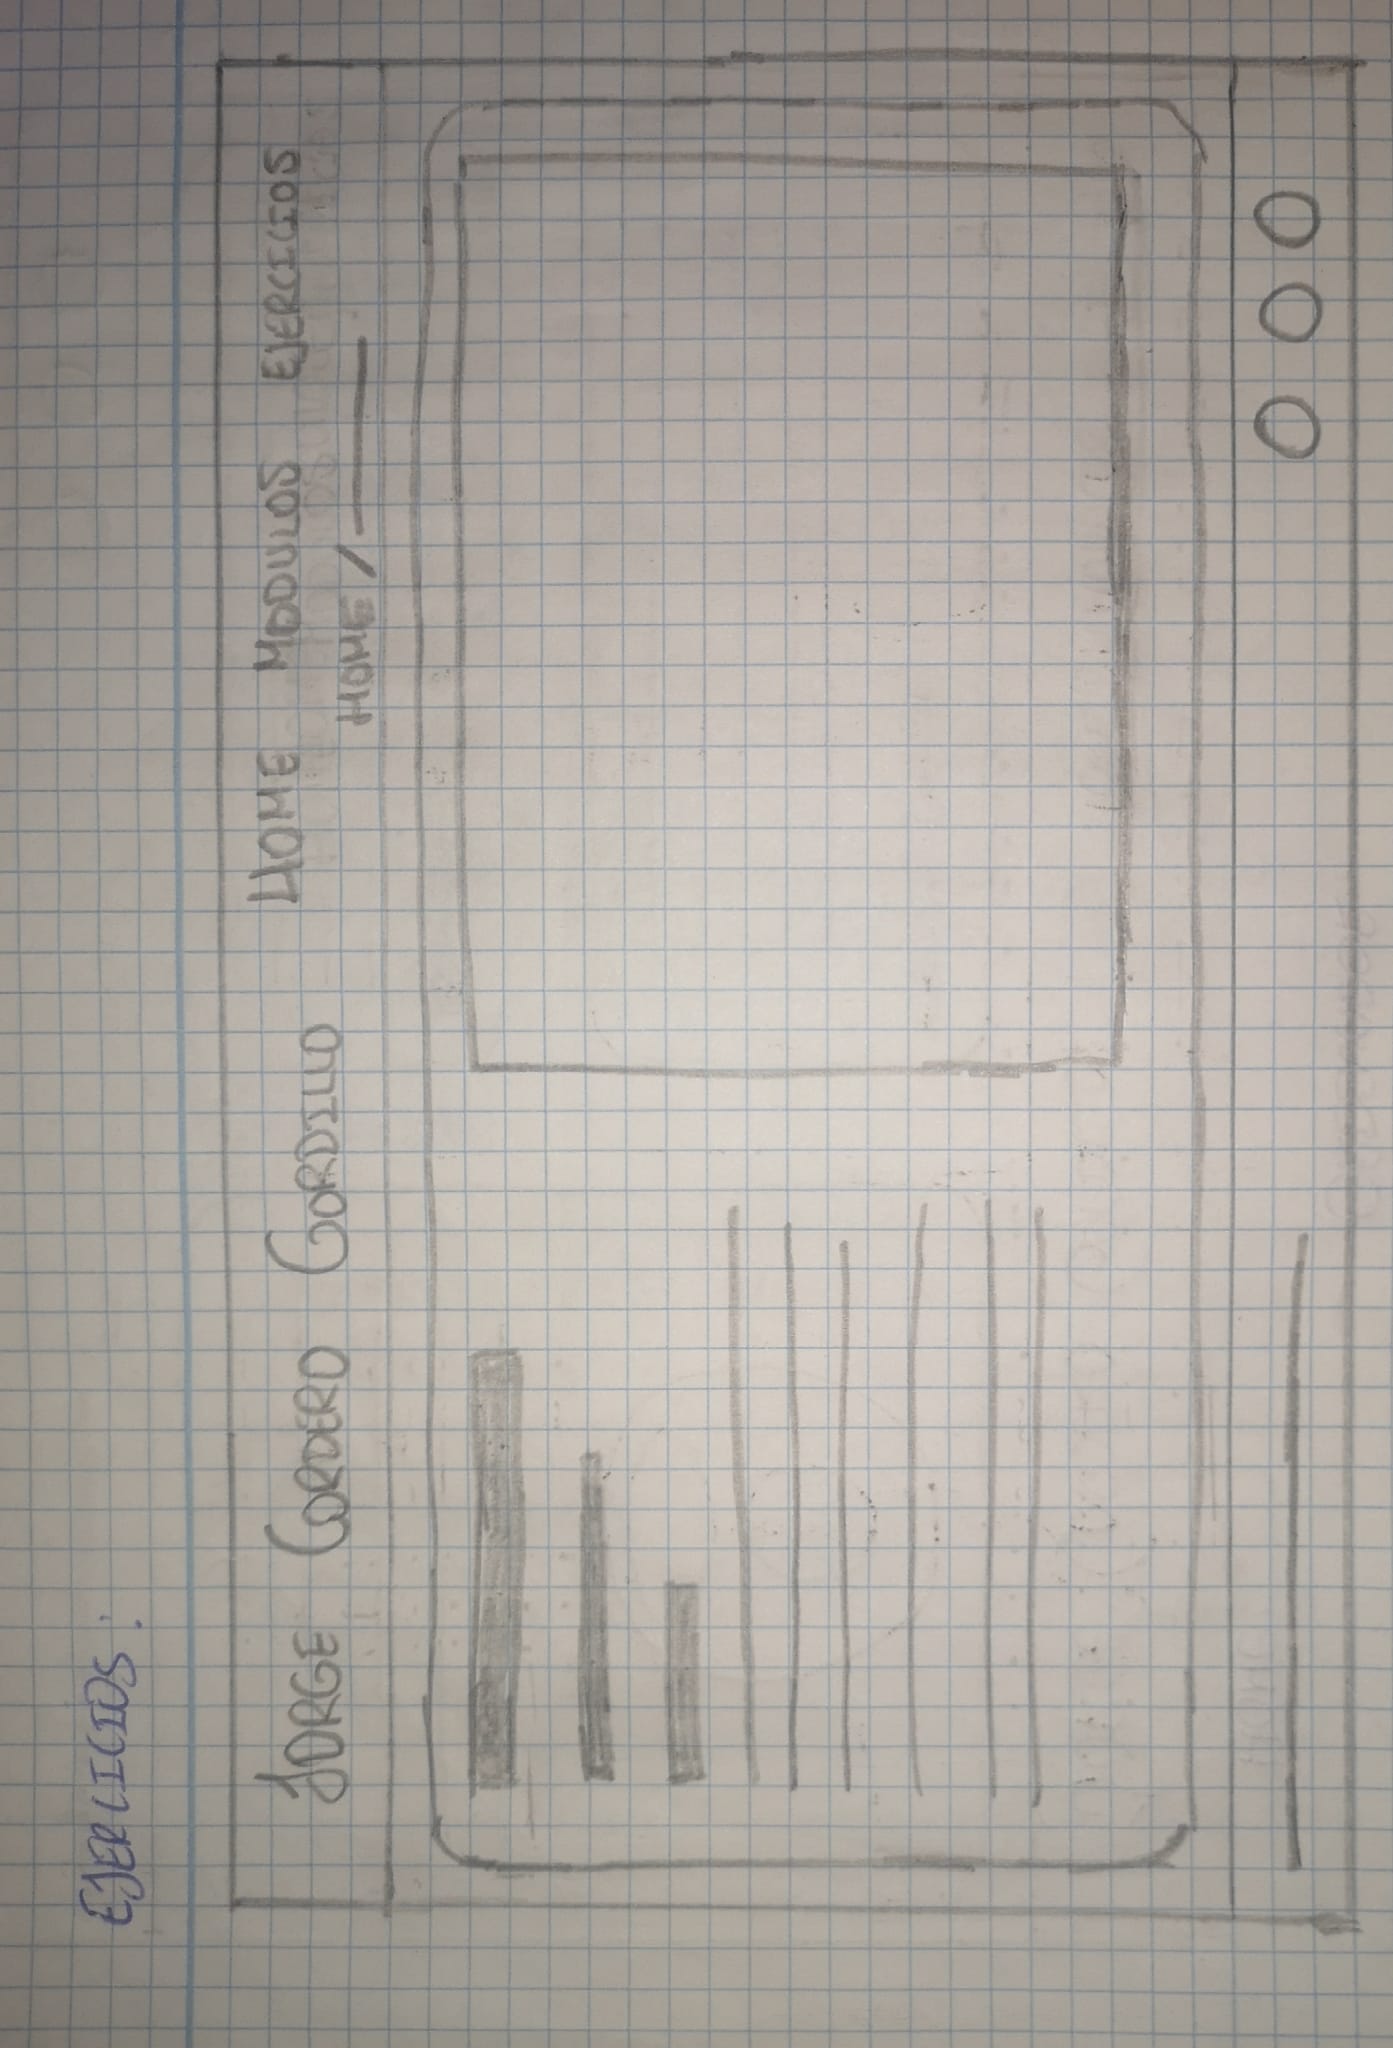 EJERCICIOS:
JORGE CORDERO GORDILLO HOME MODULOS EJERCICIOS
HOME /